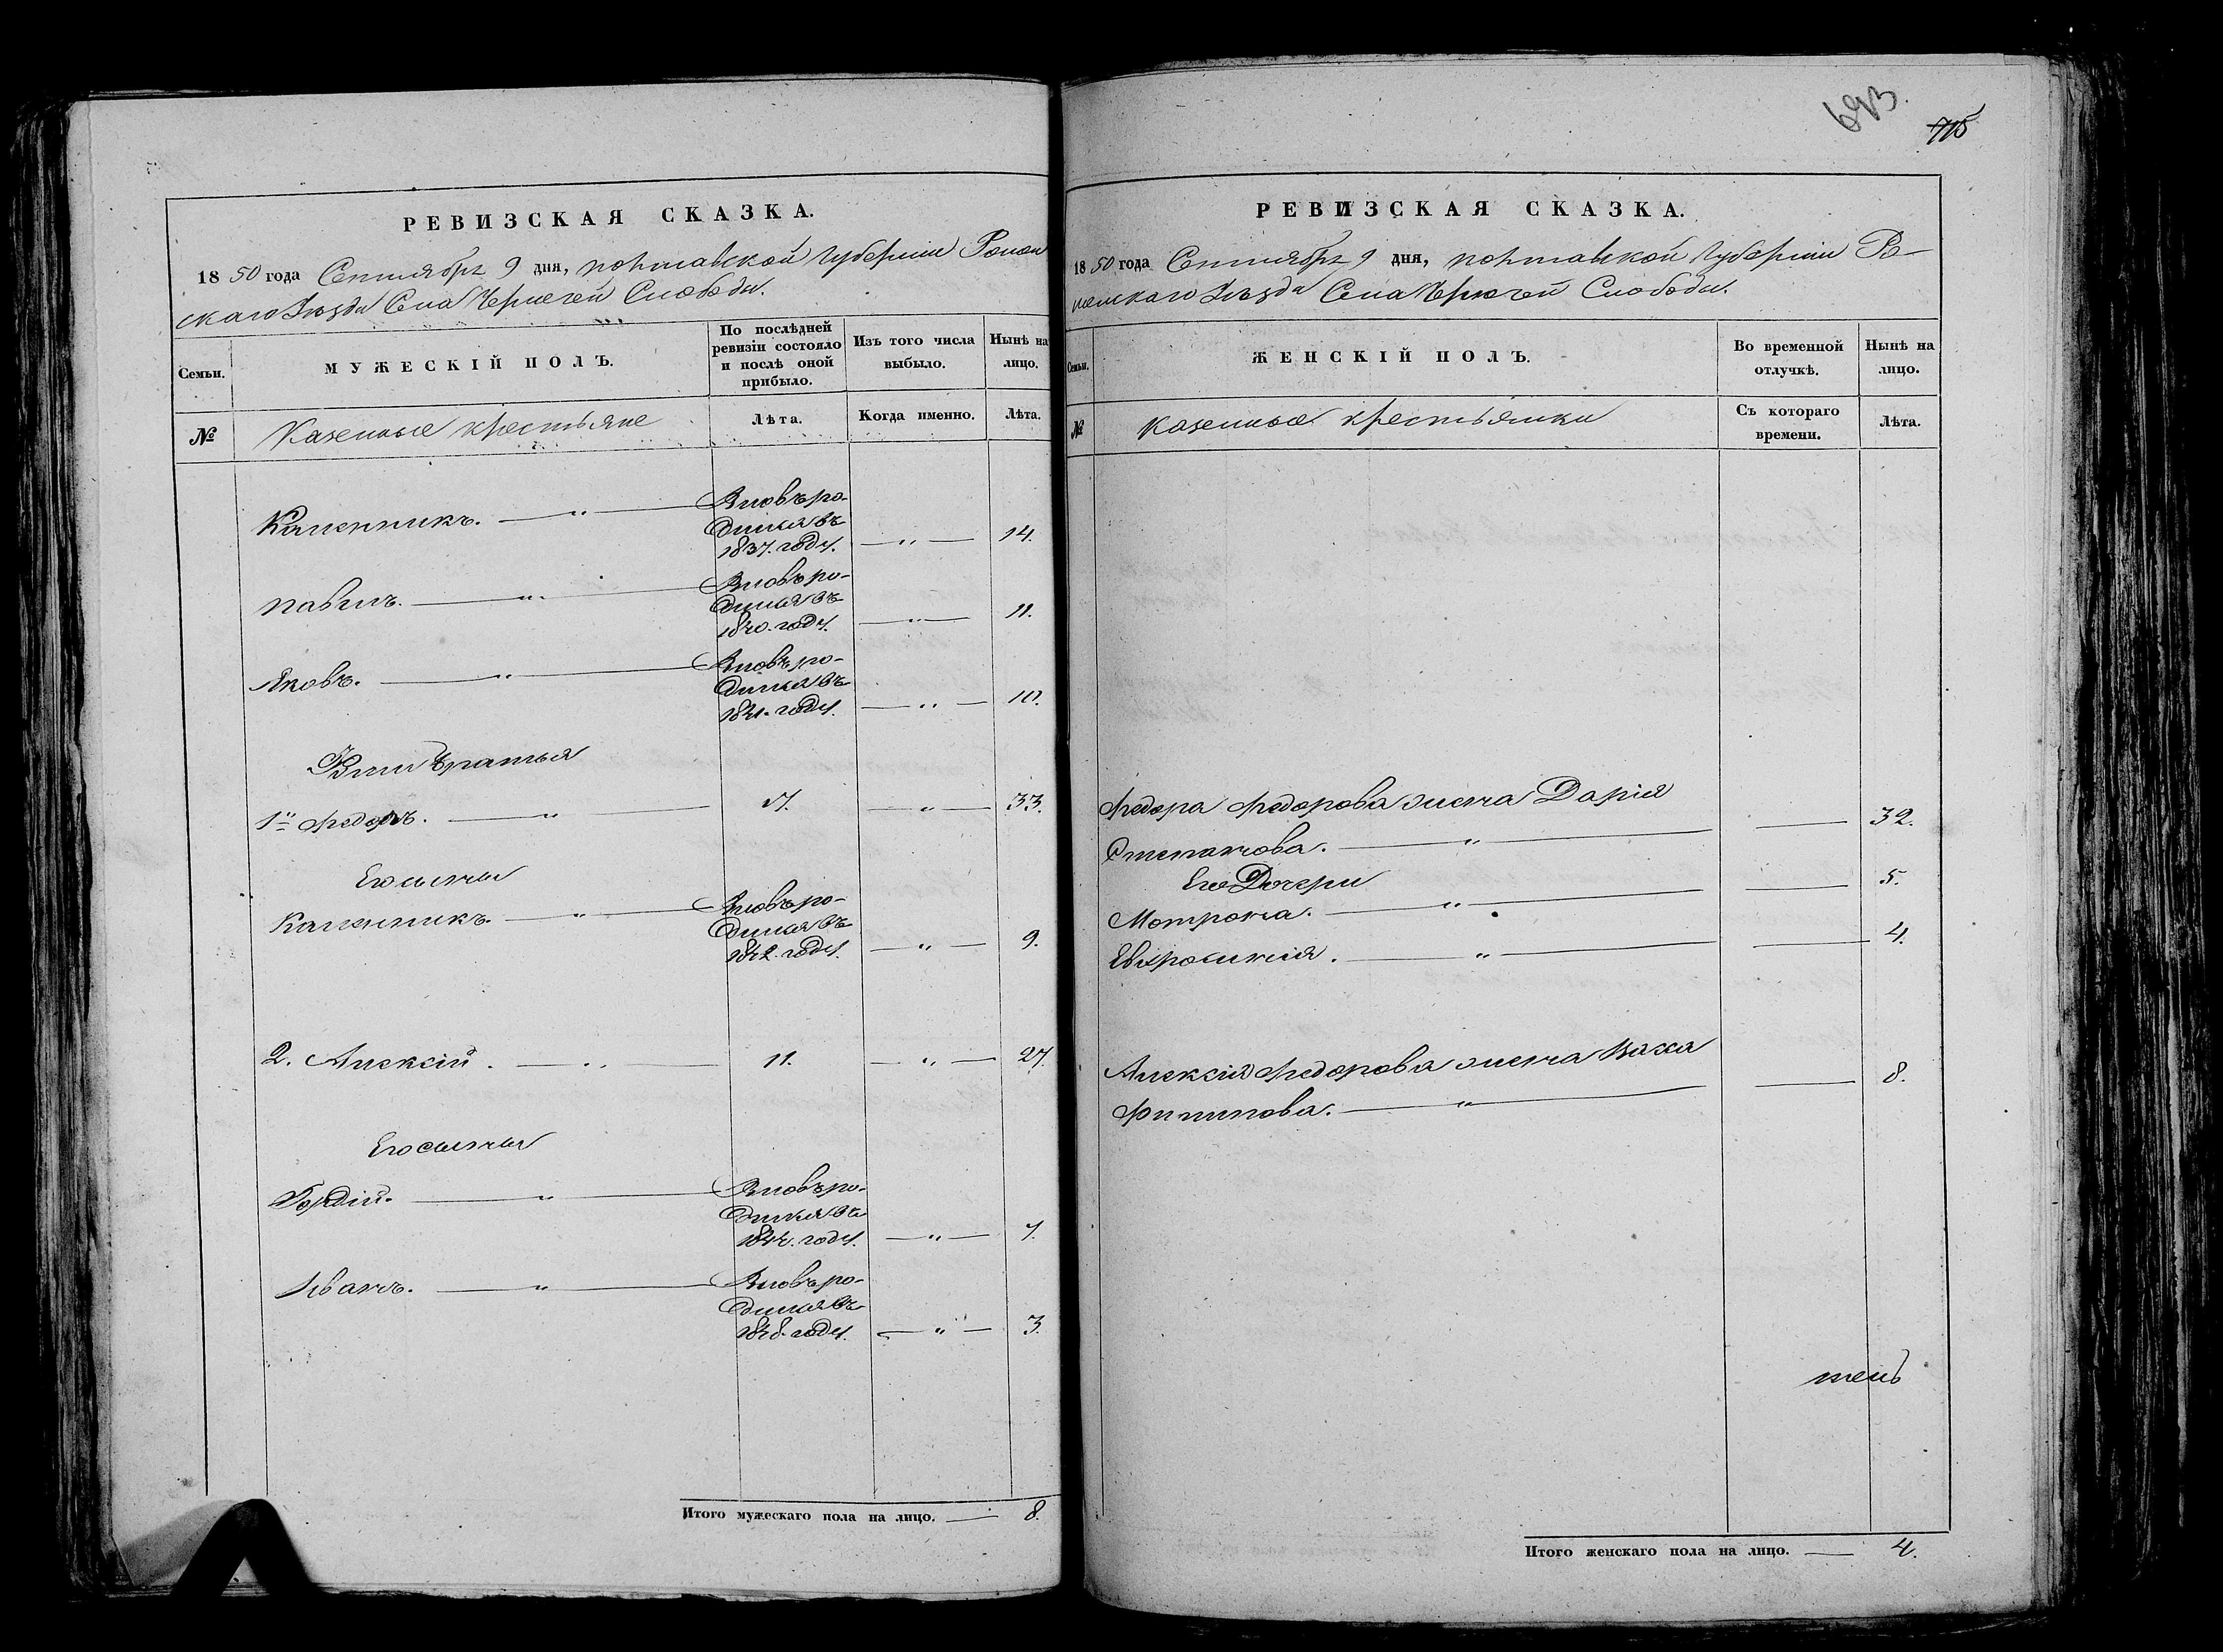 693.
715
РЕВИЗСКАЯ СКАЗКА.
1850 года Сентября 9 дня, полтавской Губерніи Ромен
скаго Уѣзда Села Чернечей Слободы.
Семьи.
МУЖЕСКІЙ ПОЛЪ.
По послѣдней ревизіи состояло и послѣ оной прибыло.
Изъ того числа выбыло.
Нынѣ на лицо.
№
Казенные крестьяне
Лѣта.
Когда именно.
Лѣта.
Каленникъ. — " — Вновь ро-
дился въ
1837. году. — " — 14.
павелъ. — " — Вновь ро-
дился въ
1840. году. — " — 11.
Яковъ. — " — Вновь ро-
дился въ
1841. году. — " — 10.
братья
1й Федоръ. — " — 17. — " — 33.
Его сыны
Каленникъ. — " — Вновь ро-
дился въ
1842. году. — " — 9.
2. Алексій. — " — 11. — " — 27.
Его сыны
Гордій. — " — Вновь ро-
дился въ
1844. году. — " — 7.
Иванъ. — " — Вновь ро-
дился въ
1848. году. — " — 3.
Итого мужескаго пола на лицо. — 8.
РЕВИЗСКАЯ СКАЗКА.
1850 года Сентября 9 дня, полтавской Губерніи Ро-
менскаго Уѣзда Села Чернечей Слободы.
Семьи.
ЖЕНСКІЙ ПОЛЪ.
Во временной отлучкѣ.
Нынѣ на лицо.
№
казенные крестьянки
Съ котораго времени.
Лѣта.
Федора Федорова жена Дарія
Степанова. — " — — 32.
Его Дочери
Мотрона. — " — — 5.
Евфросинія. — " — — 4.
Алексія Федорова жена
Филипова. — " — — 8.
Итого женскаго пола на лицо. — 4.